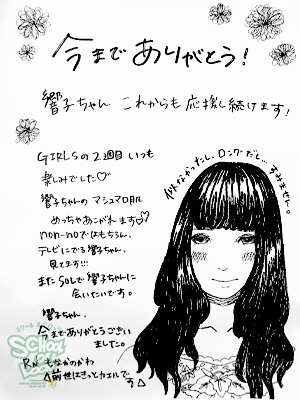 今までありがとう!
響子ちゃん これからも応援し続けます!
GIRLSの2週目いつも
楽しみでした♡
響子ちゃんのマシュマロ肌
めっちゃあこがれます♡
non-noではもちろん、
テレビにでる響子ちゃん、
見てます!!!
またSOLで響子ちゃんに
会いたいです。
響子ちゃん、
今までありがとうござい
ました。
RN もなかのかわ
△前世はきっとカエルです△
似なかったし、ロングだし…すみません。